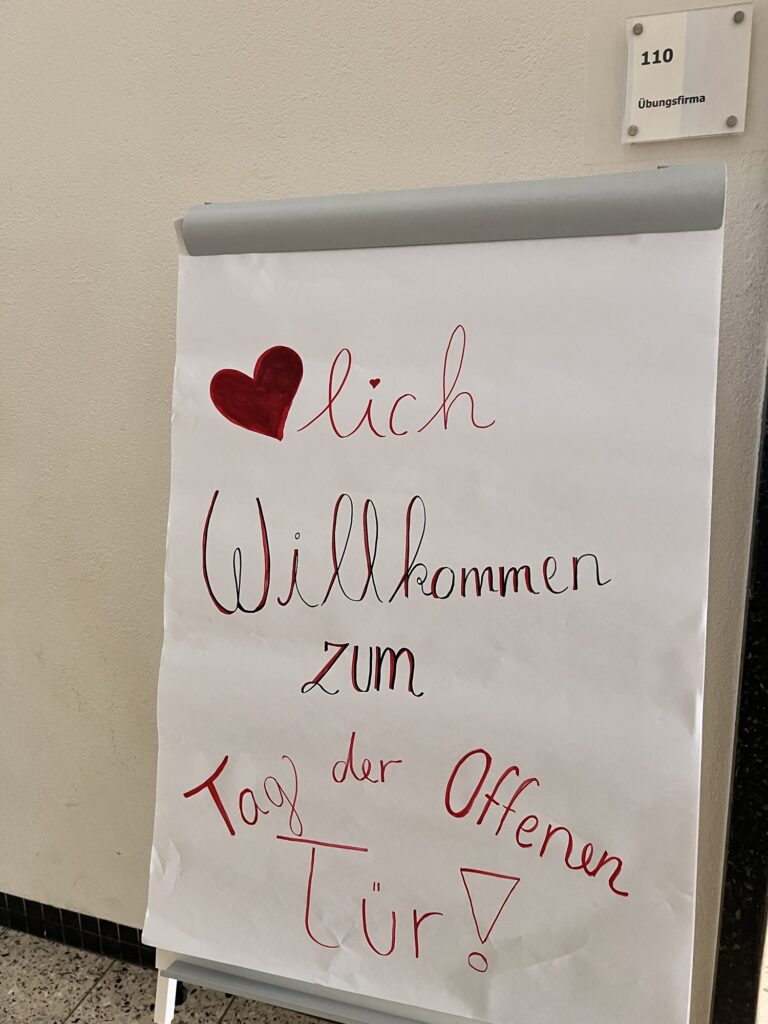 110
Übungsfirma
❤lich
Willkommen
zum
Tag der Offenen
Tür!